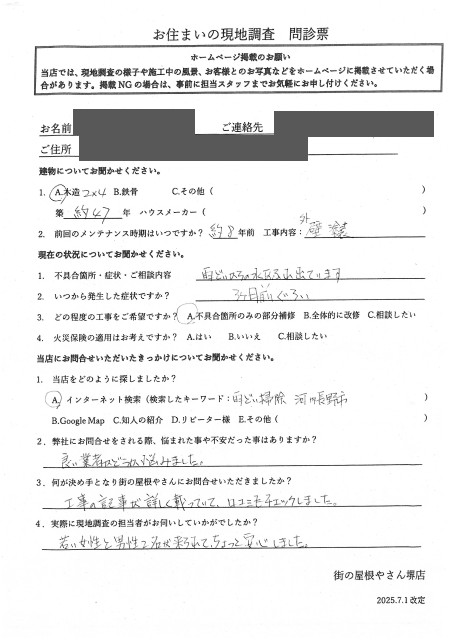 お住まいの現地調査 問診票
ホームページ掲載のお願い
当店では、現地調査の様子や施工中の風景、お客様とのお写真などをホームページに掲載させていただく場
合があります。掲載NGの場合は、事前に担当スタッフまでお気軽にお申し付けください。
お名前 ご連絡先
ご住所
建物についてお聞かせください。
1. A.木造 2×4 B.鉄骨 C.その他( )
築 約47 年 ハウスメーカー(
2. 前回のメンテナンス時期はいつですか? 約8 年前 工事内容: 外壁
現在の状況についてお聞かせください。
1. 不具合箇所・症状・ご相談内容 雨どいからの水 出ています
2. いつから発生した症状ですか? 3ヶ月前ぐらい
3. どの程度の工事をご希望ですか? A.不具合箇所のみの部分補修 B.全体的に改修 C.相談したい
4. 火災保険の適用はお考えですか? A.はい B.いいえ C.相談したい
当店にお問合せいただいたきっかけについてお聞かせください。
1. 当店をどのように探しましたか?
A. インターネット検索(検索したキーワード:雨どい掃除 河内長野市 )
B.Google Map C.知人の紹介 D.リピーター様 E.その他( )
2. 弊社にお問合せをされる際、悩まれた事や不安だった事はありますか?
良い業者かどうか悩みました。
3. 何が決め手となり街の屋根やさんにお問合せいただきましたか?
工事の記事が詳しく載っていて、口コミもチェックしました。
4. 実際に現地調査の担当者がお伺いしていかがでしたか?
若い女性と男性2名が来られて、ちょっと安心しました。
街の屋根やさん堺店
2025.7.1改定